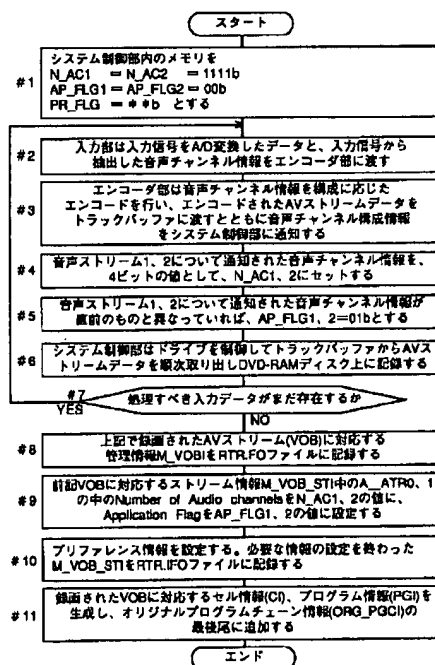 スタート
#1
システム制御部内のメモリを
N_AC1 = N_AC2 = 1111b
AP_FLG1 = AP_FLG2 = 00b
PR_FLG = **b とする
#2
入力部は入力信号をA/D変換したデータと、入力信号から
抽出した音声チャンネル情報をエンコーダ部に渡す
#3
エンコーダ部は音声チャンネル情報を構成に応じた
エンコードを行い、エンコードされたAVストリームデータを
トラックバッファに渡すとともに音声チャンネル構成情報
をシステム制御部に通知する
#4
音声ストリーム1、2について通知された音声チャンネル情報を、
4ビットの値として、N_AC1、2にセットする
#5
音声ストリーム1、2について通知された音声チャンネル情報が
直前のものと異なっていれば、AP_FLG1、2=01bとする
#6
システム制御部はドライブを制御してトラックバッファからAVス
トリームデータを順次取り出しDVD-RAMディスク上に記録する
#7
YES
処理すべき入力データがまだ存在するか
NO
#8
上記で録画されたAVストリーム(VOB)に対応する
管理情報M_VOBIをRTR.IFOファイルに記録する
#9
前記VOBに対応するストリーム情報M_VOB_STI中のA_ATR0、1
の中のNumber of Audio channelsをN_AC1、2の値に、
Application FlagをAP_FLG1、2の値に設定する
#10
プリファレンス情報を設定する。必要な情報の設定を終わった
M_VOB_STIをRTR.IFOファイルに記録する
#11
録画されたVOBに対応するセル情報(CI)、プログラム情報(PGI)を
生成し、オリジナルプログラムチェーン情報(ORG_PGCI)の
最後尾に追加する
エンド